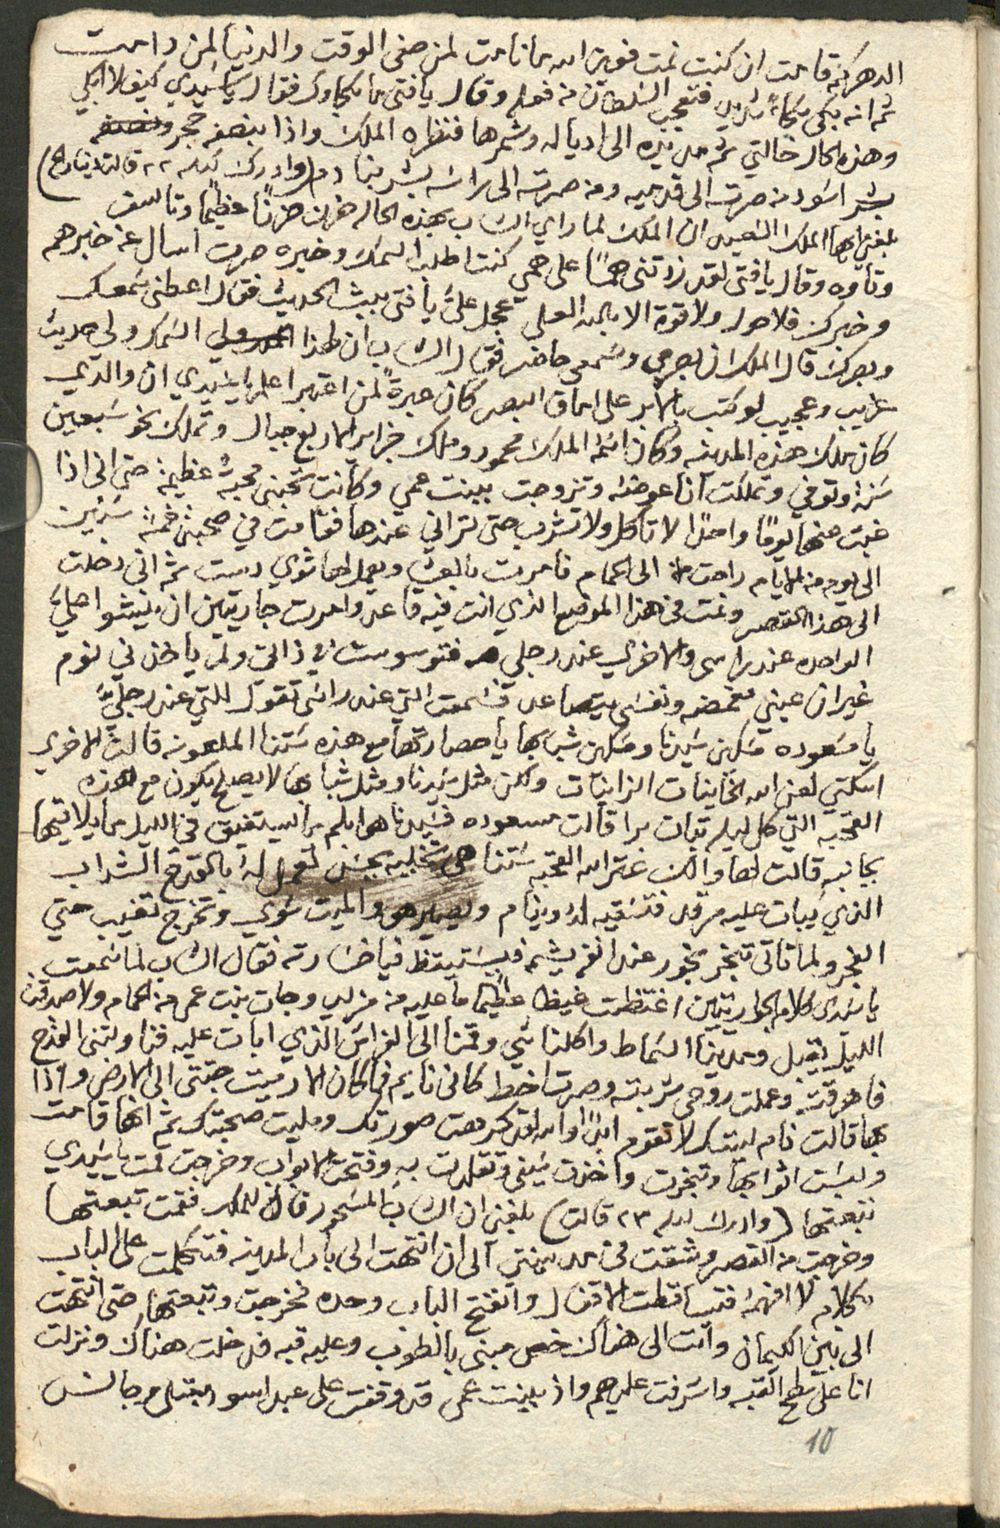 الدهر كم قامت ان كنت نمت فعين الله ما نامت لمن صفى الوقت والدنيا لمن دامت
ثم انه بكى بكاءً شديد فتعجب السلطان من فعله وقال يا فتى ما بكاوك فقال يا سيدي كيف لا ابكي
وهذه الحال حالتي ثم مد يده الى اديا له وشمرها فنظره الملك واذا بنصفه حجر ونصفه
بشر اسود من صرته الى قدميه ومن صرته الى راسه بشر بنا ادم (وادرك ليله ٢٢ قالت دينارزاد)
بلغني ايها الملك السعيد ان الملك لما راى الشاب بهذه الحاله حزن حزنًا عظيمًا وتاسف
وتاوه وقال يا فتى لقد زدتني همًا على همي كنت اطلب السمك وخبره صرت اسال عن خبرهم
وخبرك فلا حول ولا قوة الا بالله العلي عجل عليّ يا فتى ببث الحديث فقال اعطني سمعك
وبصرك قال الملك ان بصري وسمعي حاضر فقال الشاب ان لهذا السمك ولي حديث
غريب وعجيب لو كتب بالابر على اماق البصر كان عبرةً لمن اعتبر اعلم يا سيدي ان والدي
كان ملك هذه المدينه وكان اسمه الملك محمود وملك جزاير الاربع جبال وتملك نحو سبعين
سنه وتوفي وتملكت انا عوضه وتزوجت ببنت عمي وكانت تحبني محبةً عظيمة حتى اني اذا
غبت عنها يومًا واحدًا لا تاكل ولا تشرب حتى تراني عندها فقامت في صحبتي خمسة سنين
الى يوم من الايام راحت الى الحمام فامرت بالعشا ويعمل لها شوي دست ثم اني دخلت
الى هذا القصر ونمت في هذا الموضع الذي انت فيه قاعد وامرت جاريتين ان يلبثوا حليّ
الواحده عند راسي والاخرى عند رجلي فتوسوست في ذالتي ولم ياخذني نوم
غير ان عيني مغمضه ونفسي يتصاعد فسمعت التي عند راسي تقول للتي عند رجليّ
يا مسعوده مسكين سيدنا ومسكين شبابها يا خسارتها مع هذه ستنا الملعونه قالت الاخرى
اسكتي لعن الله الخاينات الزانيات ولكن مثل سيدنا ومثل شبابها لا يصلح يكون مع هذه
القحبه التي كل ليله تبات برا قالت مسعوده فسيدنا هو ابلم ما يستفيق في الليل ما يلاقيها
بجانبه قالت لها والكن عثر الله القحبه ستنا هي تخليه بحس تعمل له بالقدح الشراب
الذي يبات عليه مرقد فتسقيه له وينام ويصير هو والميت سوي وتخرج تغيب حتى
الفجر ولما تاتي تبخر بخور عند انفه يشمه فيستيقظ فيا خسارته فقال الشاب لما سمعت
يا سيدي كلام الجواريتين اغتظت غيظا عظيما ما عليه من مزيد وجات بنت عمي من الحمام ولا صدقت
الليل يقبل ومدينا السماط واكلنا شي وقمنا الى الفراش الذي ابات عليه فناولتني القدح
فاهرقته وعملت روحي شربته وصرت اخط كاني نايم فما كان الا رميت جتتي الى الارض واذا
بها قالت نام ليتك لا تقوم ابدًا والله لقد كرهت صورتك ومليت صحبتك ثم انها قامت
ولبست اثوابها وتبخرت واخذت سيفي وتقلدت به وفتحت الابواب وخرجت قمت يا سيدي
تبعتها (وادرك ليله ٢٣ قالت) بلغني ان الشاب المسحور قال للملك فقمت تبعتها
وخرجت من القصر وشقت في مدينتي الى ان انتهت الى باب المدينه فتكلمت على الباب
بكلام لا افهمه فتساقطت الاقفال وانفتح الباب وحده فخرجت وتبعتها حتى انتهت
الى بين الكيمان وانت الى هناك خص مبني بالطوب وعليه قبه فدخلت هناك ونزلت
انا على سطح القبه واشرفت عليهم واذ ببنت عمي قد وقفت على عبد اسود مبتلى جالس
10